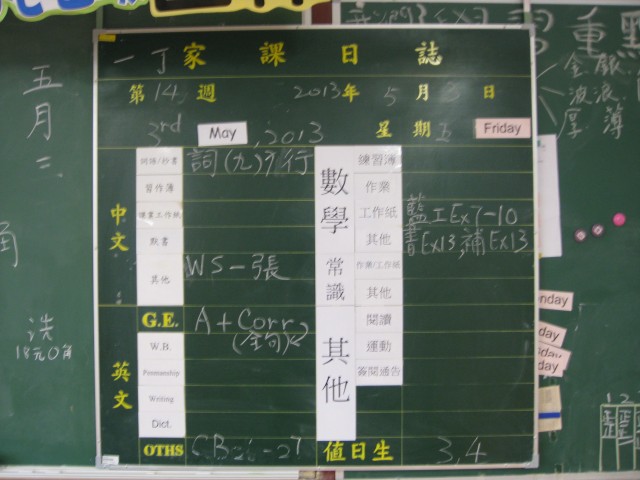 一丁家課日誌
第14週 2013年5月3日
3rd May, 2013 星期五 Friday
中文
詞語/抄書 詞(九)
習作簿
課業工作紙
默書
其他 WS一張
英文
G.E. A + Corr
(全句)
W.B.
Penmanship
Writing
Dict.
OTHS CB26-27
數學
練習簿
作業
工作紙 藍工Ex7-10
其他 書Ex13,補Ex13
常識
作業/工作紙
其他
其他
閱讀
運動
簽閱通告
值日生 3,4
五月三
角
洗
18元0角
習重點
金銀
波浪
厚薄
day
day
day
12